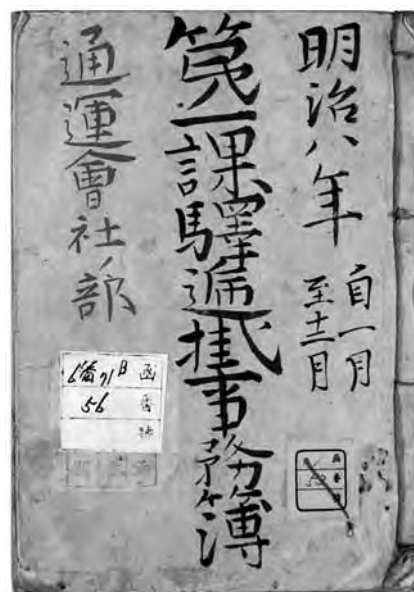 明治八年
自一月
至十二月
第一課驛逓掛事務簿
通運會社ノ部
函
56